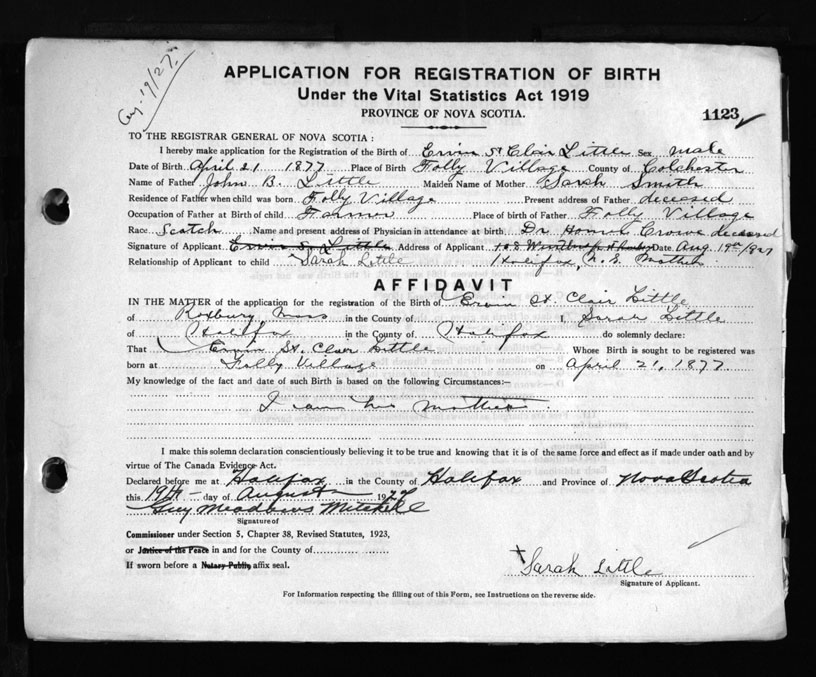 Aug. 19/27.
APPLICATION FOR REGISTRATION OF BIRTH
Under the Vital Statistics Act 1919
PROVINCE OF NOVA SCOTIA.
1123
TO THE REGISTRAR GENERAL OF NOVA SCOTIA:
I hereby make application for the Registration of the Birth of Ervin St Clair Little Sex male
Date of Birth April 21 1877 Place of Birth Folly Village County of Colchester
Name of Father John B. Little Maiden Name of Mother Sarah Smith
Residence of Father when child was born Folly Village Present address of Father deceased
Occupation of Father at Birth of child Farmer Place of birth of Father Folly Village
Race Scotch Name and present address of Physician in attendance at birth Dr Crowe deceased
Signature of Applicant Ervin S. Little Address of Applicant Date Aug. 19th/1927
Relationship of Applicant to child Sarah Little Halifax, N.S. Mother
AFFIDAVIT
IN THE MATTER of the application for the registration of the Birth of Ervin St. Clair Little
of Roxbury Mass in the County of I, Sarah Little
of Halifax in the County of Halifax do solemnly declare:
That Ervin St. Clair Little Whose Birth is sought to be registered was
born at Folly Village on April 21, 1877
My knowledge of the fact and date of such Birth is based on the following Circumstances:—
I am his mother.
I make this solemn declaration conscientiously believing it to be true and knowing that it is of the same force and effect as if made under oath and by
virtue of The Canada Evidence Act.
Declared before me at Halifax in the County of Halifax and Province of Nova Scotia
this 19th day of August 1927
Guy Meadows Mitchell
Signature of
Commissioner under Section 5, Chapter 38, Revised Statutes, 1923,
or Justice of the Peace in and for the County of
If sworn before a Notary Public, affix seal.
x Sarah Little
Signature of Applicant.
For Information respecting the filling out of this Form, see Instructions on the reverse side.